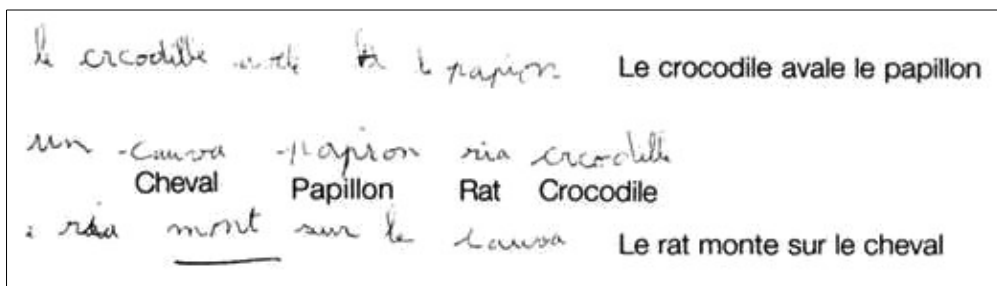 le crcodille le papion Le crocodile avale le papillon
un cauva papion ria crcodille
Cheval Papillon Rat Crocodile
ria mont sur le cauva Le rat monte sur le cheval